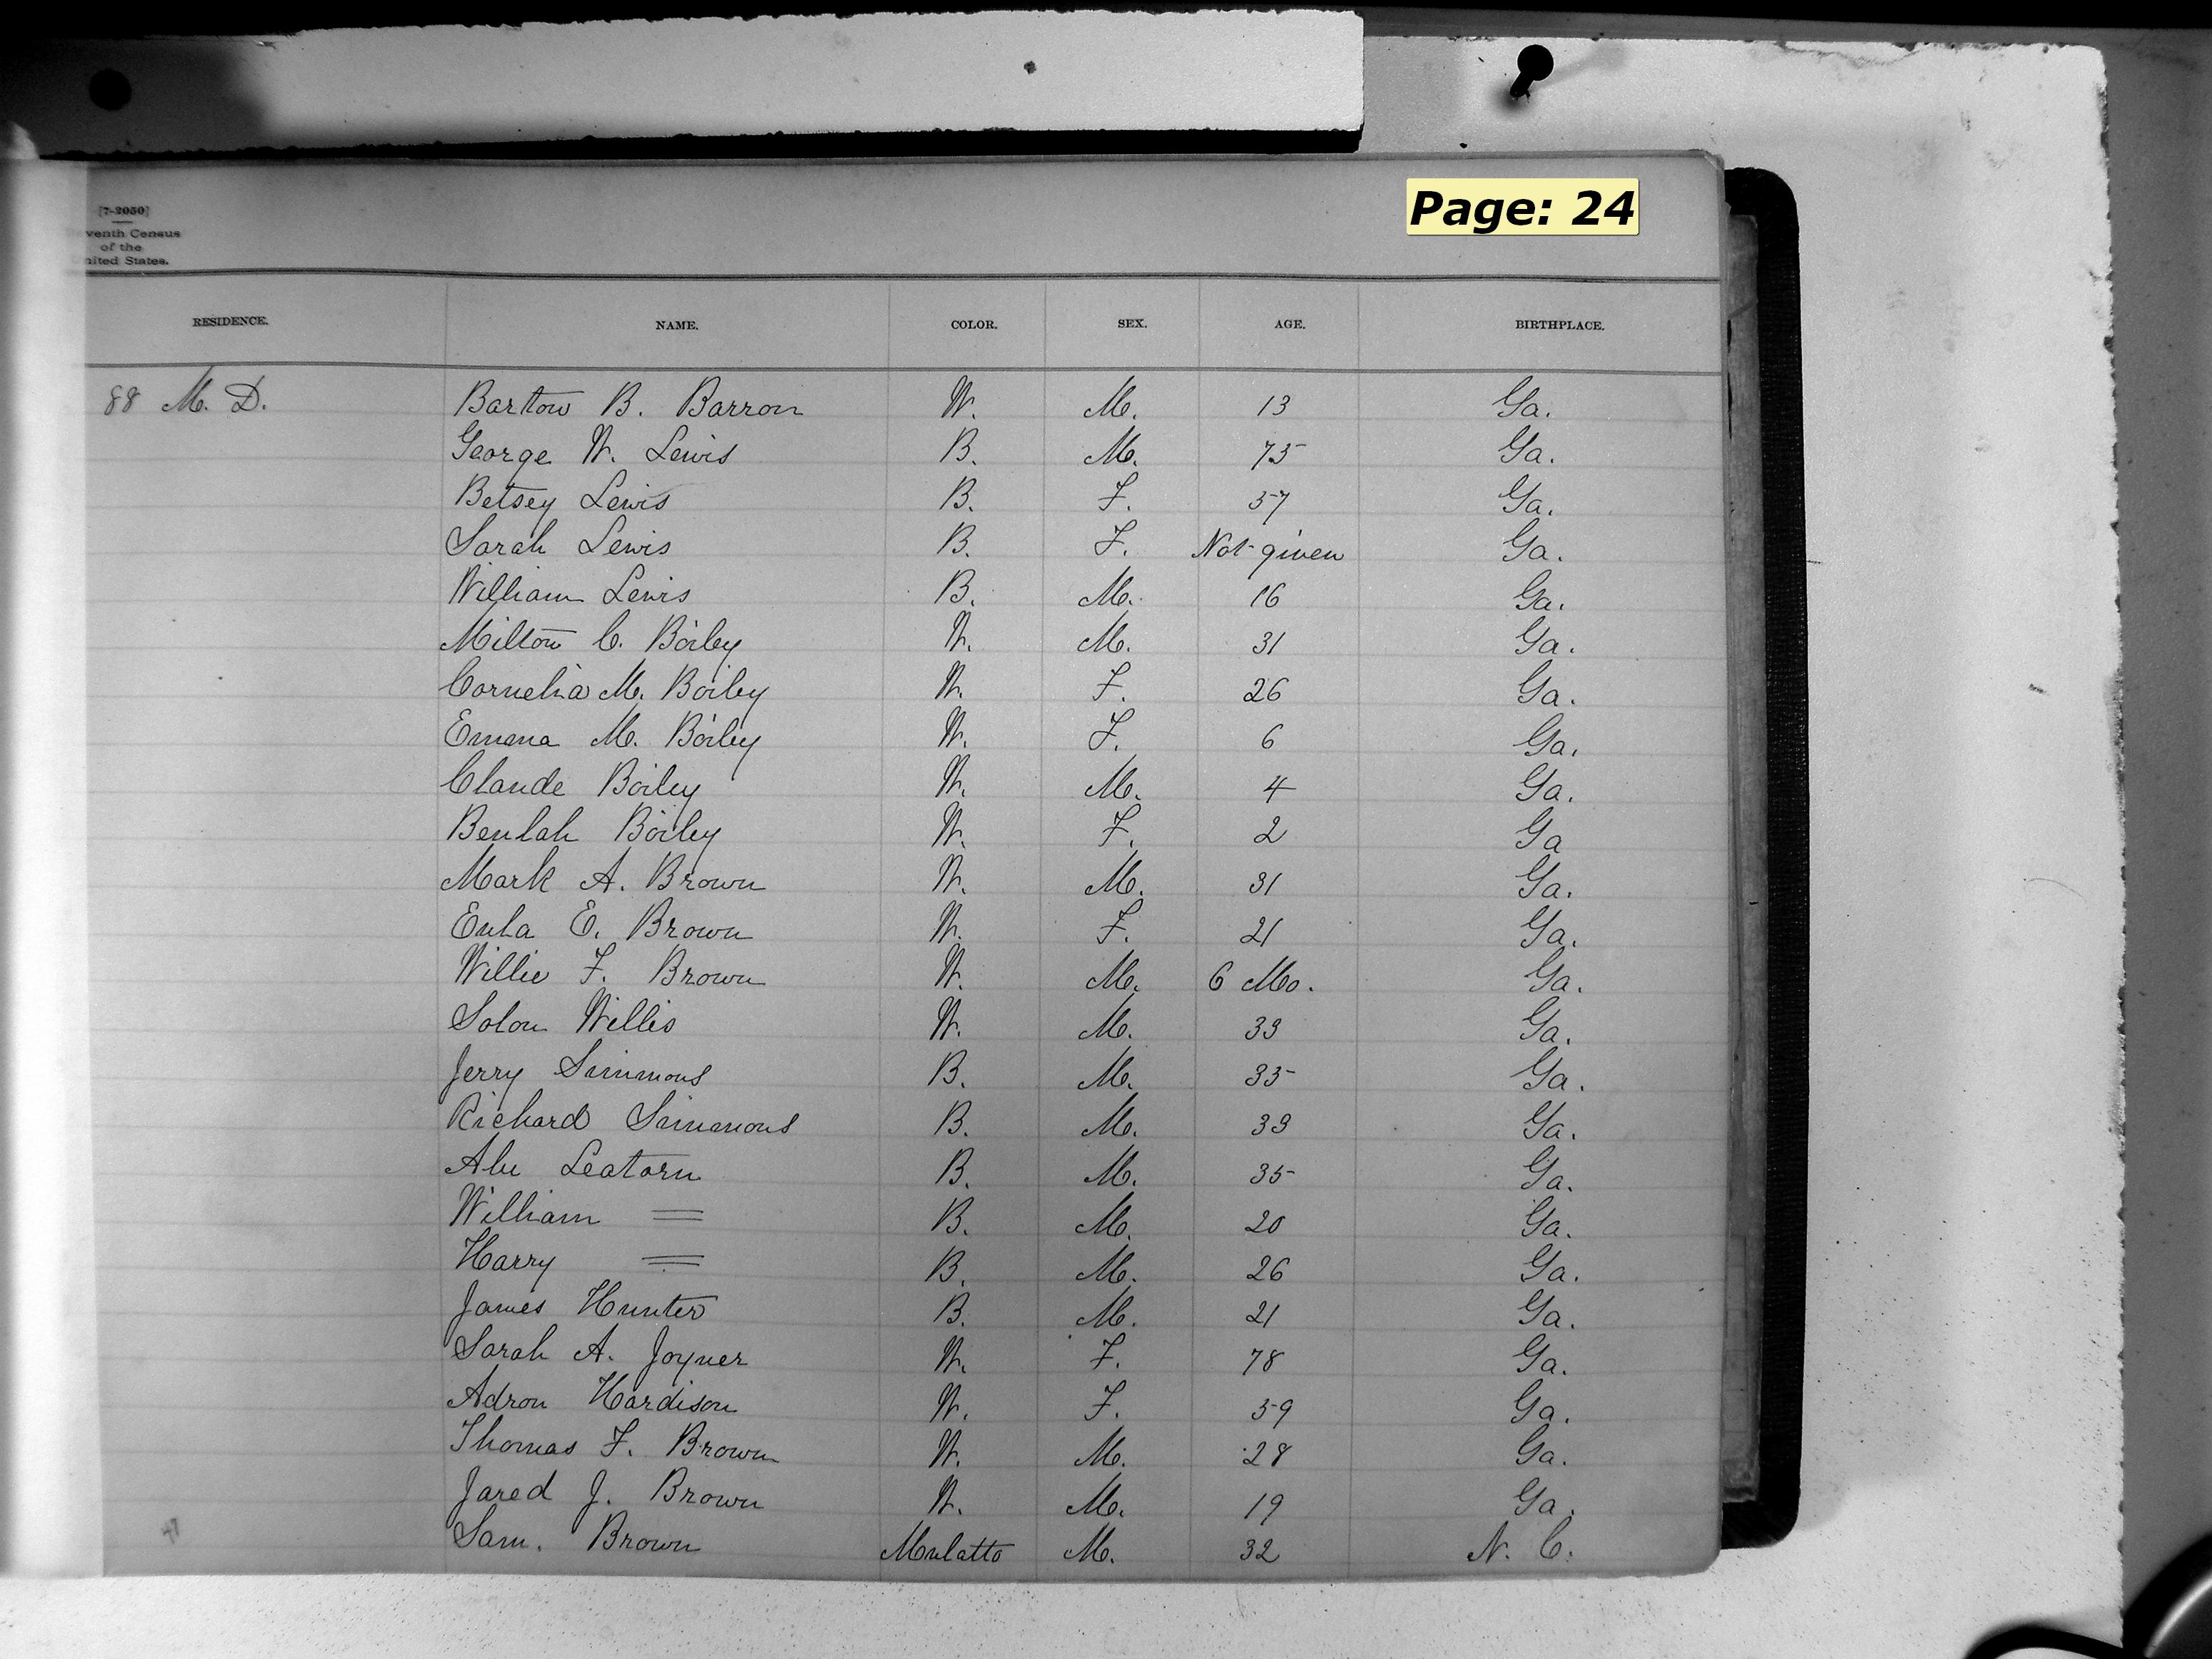 Page: 24
[7-2050]
venth Census
of the
nited States.
RESIDENCE. NAME. COLOR. SEX. AGE. BIRTHPLACE.
88 M. D. Bartow B. Barron W. M. 13 Ga.
George W. Lewis B. M. 75 Ga.
Betsey Lewis B. F. 57 Ga.
Sarah Lewis B. F. Not given Ga.
William Lewis B. M. 16 Ga.
Milton C. Boiley W. M. 31 Ga.
Cornelia M. Boiley W. F. 26 Ga.
Emma M. Boiley W. F. 6 Ga.
Claude Boiley W. M. 4 Ga.
Beulah Boiley W. F. 2 Ga
Mark A. Brown W. M. 31 Ga.
Eula E. Brown W. F. 21 Ga.
Willie F. Brown W. M. 6 Mo. Ga.
Solon Willis W. M. 33 Ga.
Jerry Simmons B. M. 35 Ga.
Richard Simmons B. M. 33 Ga.
Abe Leatorn B. M. 35 Ga.
William = B. M. 20 Ga.
Harry = B. M. 26 Ga.
James Hunter B. M. 21 Ga.
Sarah A. Joyner W. F. 78 Ga.
Adron Hardison W. F. 59 Ga.
Thomas F. Brown W. M. 28 Ga.
Jared J. Brown W. M. 19 Ga.
Sam. Brown Mulatto M. 32 N. C.